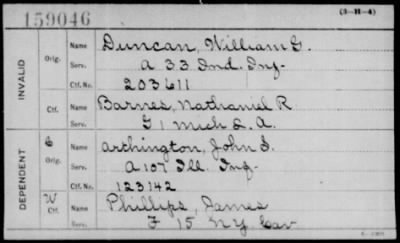 159046 (3-H-4)
INVALID
Orig. Name Duncan, William G.
Serv. A 33 Ind. Inf.
Ctf. No. 203611
Ctf. Name Barnes, Nathaniel R
Serv. G 1 Mich L. A.
DEPENDENT
C Orig. Name Archington, John S.
Serv. A 107 Ill. Inf.
Ctf. No. 123142
W Ctf. Name Phillips, James
Serv. F 15 NY Cav